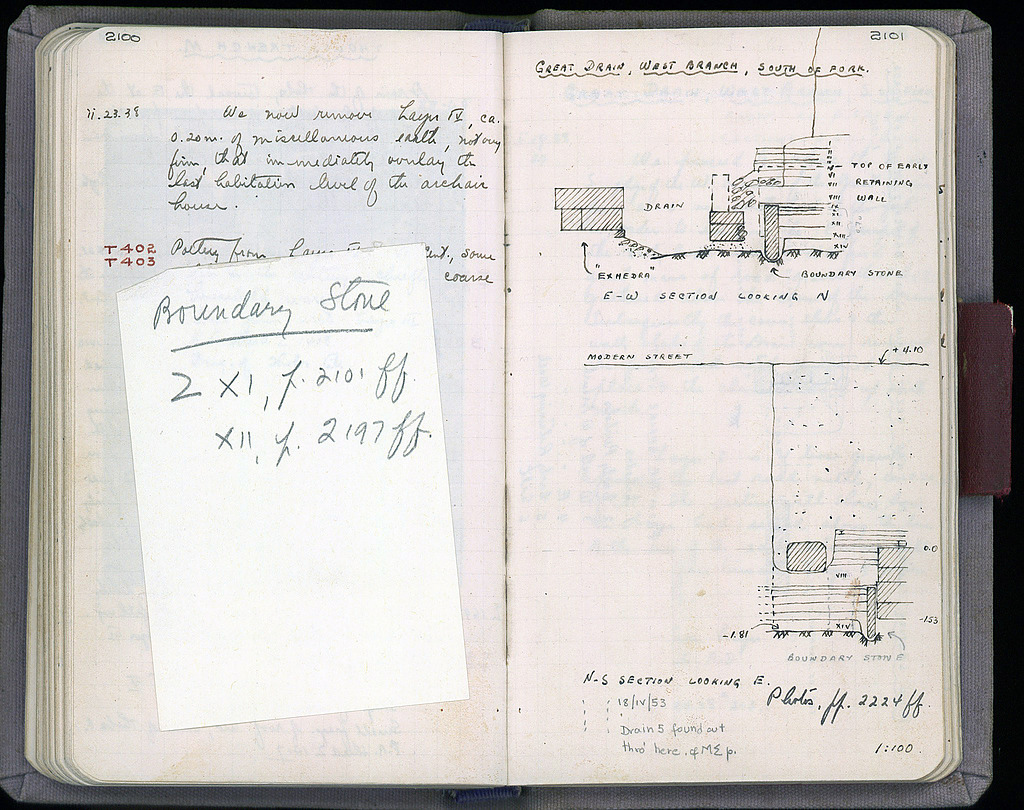 2100
II.23.38 We now remove Layer IV, ca.
0.20m. of miscellaneous earth, not very
firm, that immediately overlay the
last habitation level of the archaic
house.
T 402 Pottery from Layer some
T 403 coarse
Boundary Stone
Σ XI, p. 2101 ff.
XII, p. 2197 ff.
2101
GREAT DRAIN, WEST BRANCH, SOUTH OF FORK.
TOP OF EARLY
RETAINING
WALL
DRAIN
VI
VII
VIII
IX
XI
XII
XIII
XIV
"EXHEDRA"
BOUNDARY STONE
E-W SECTION LOOKING N
MODERN STREET
+4.10
0.0
VIII
-1.53
-1.81
XIV
BOUNDARY STONE
N-S SECTION LOOKING E.
18/IV/53
Photos, pp. 2224 ff.
Drain 5 found out
thro' here. cf MΣ p.
1:100.